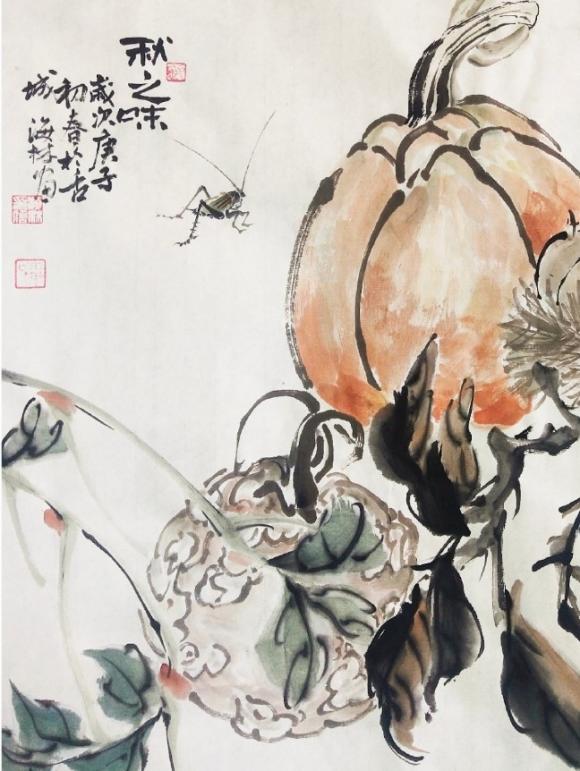 秋之味
歲次庚子
初春於古
城海林寫